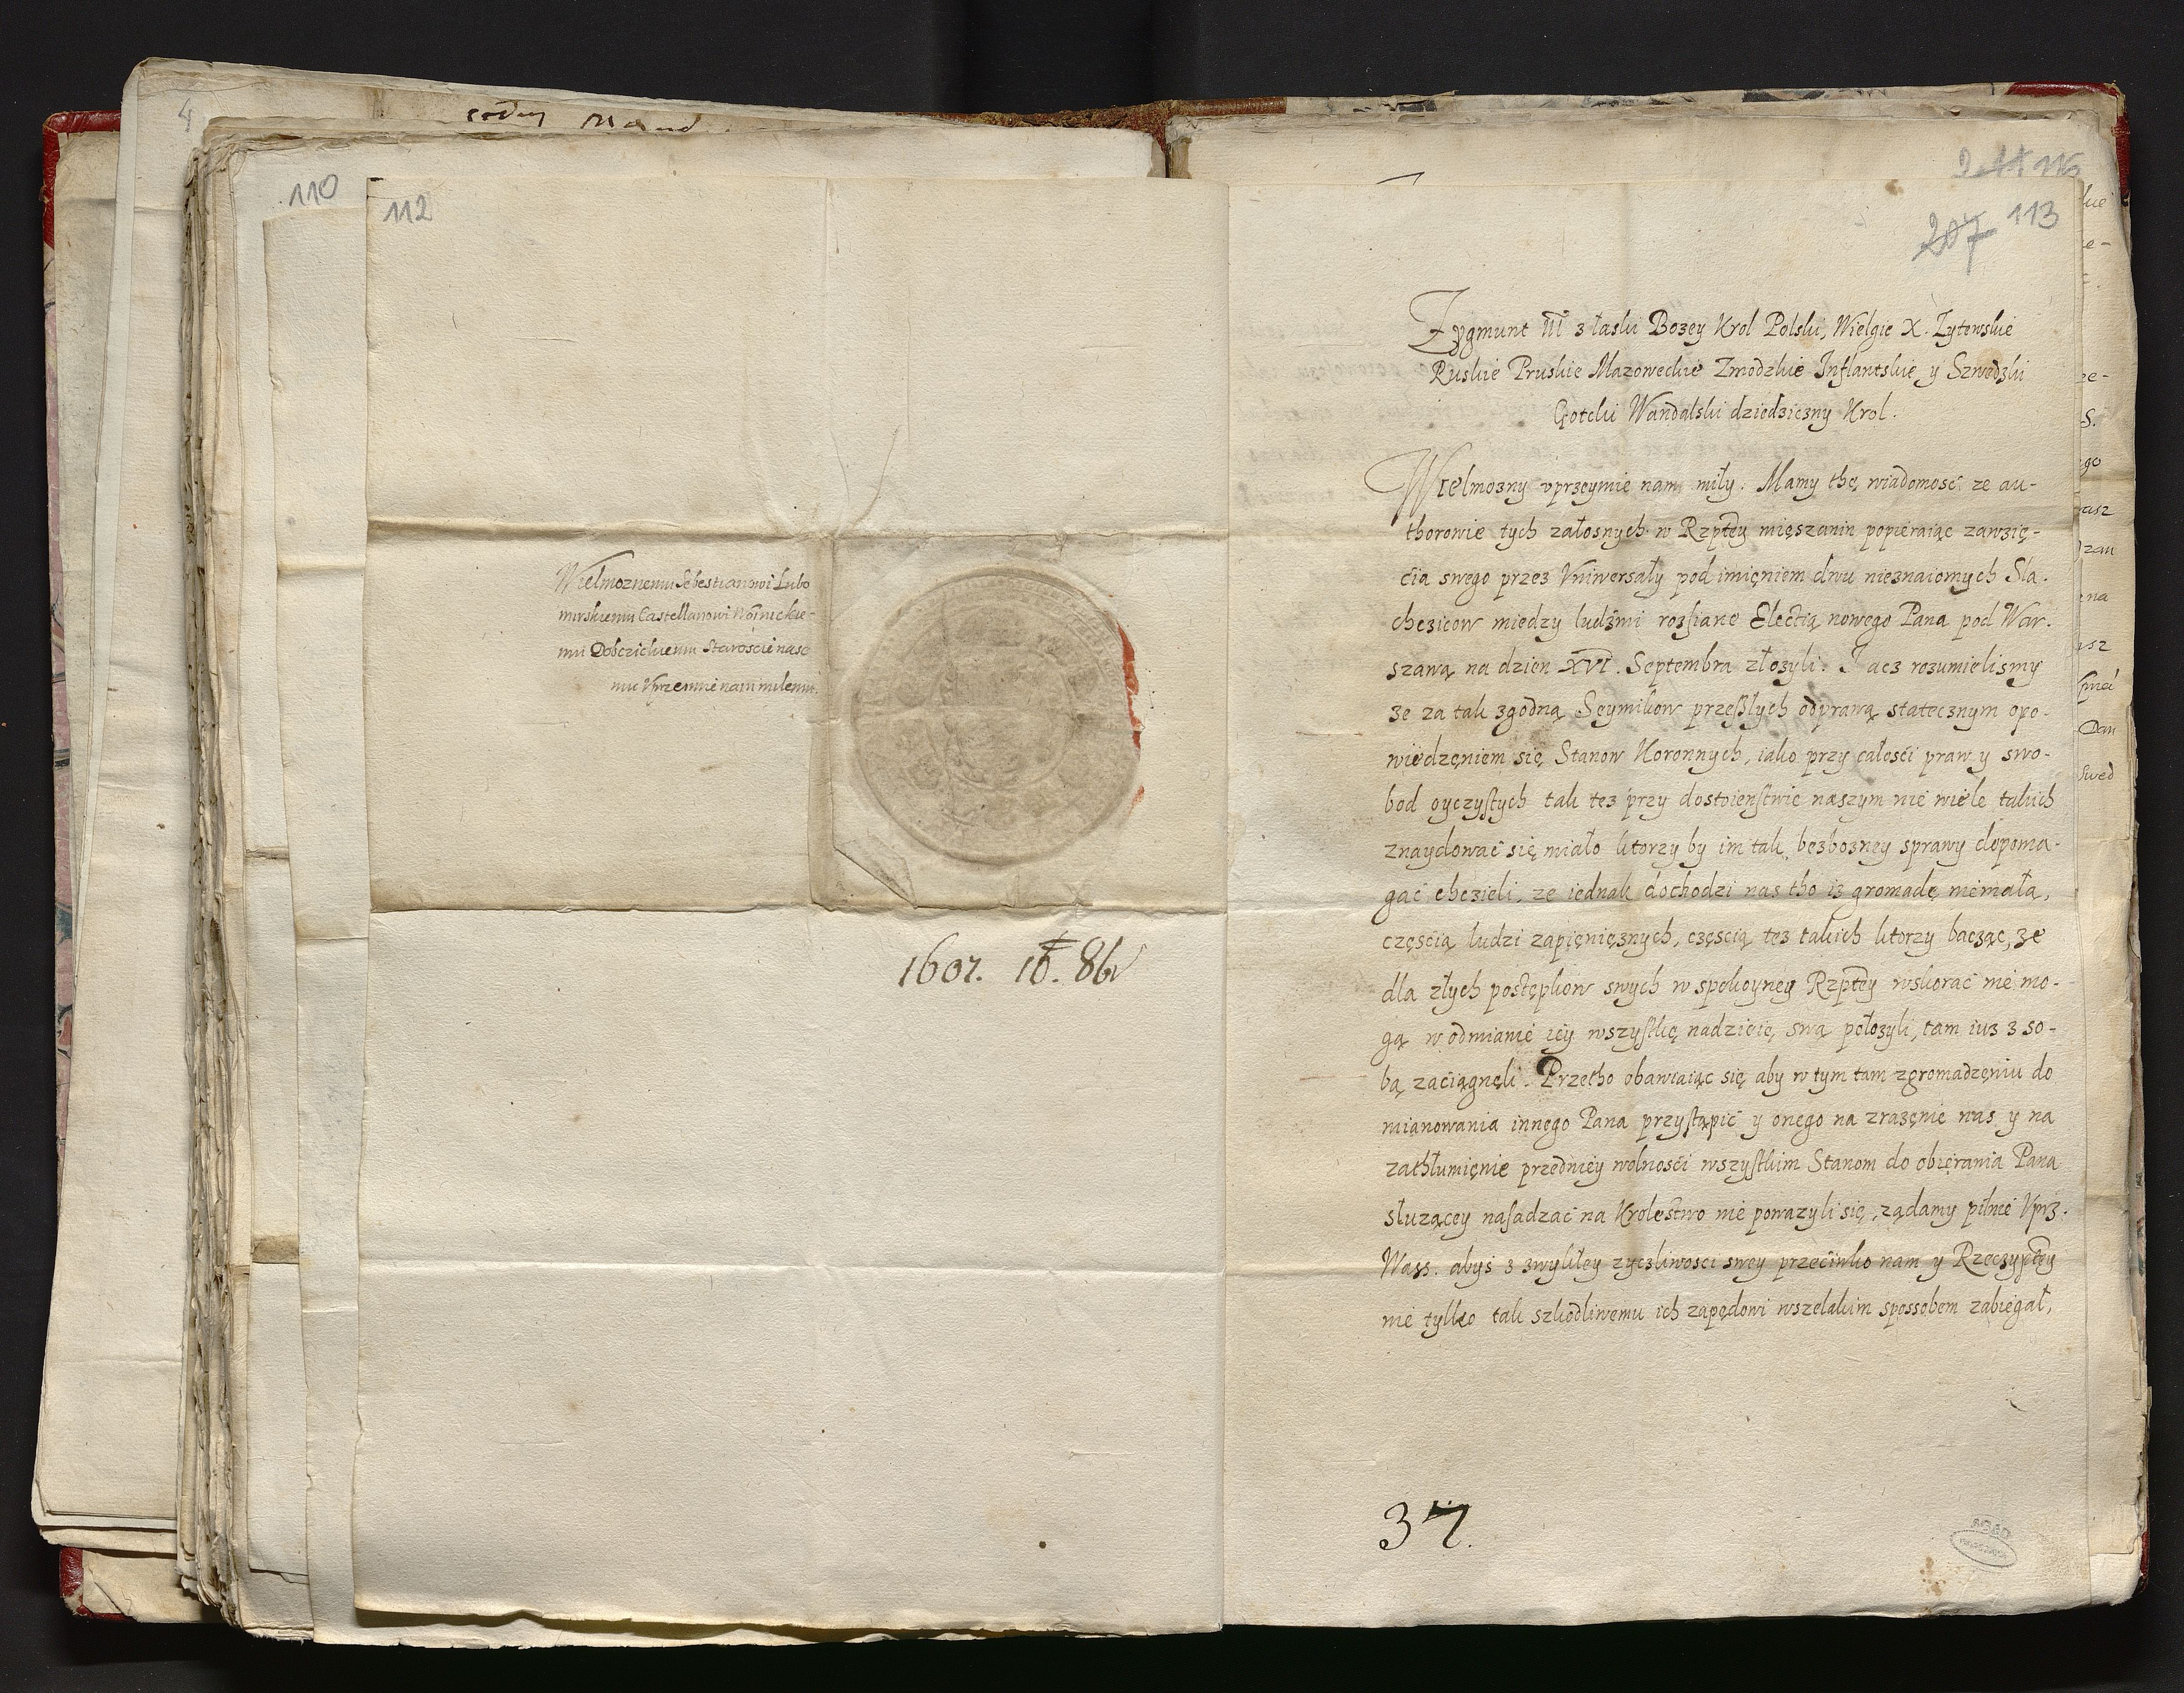 4
110
112
Wielmoznemu Sebestianowi Lubo
mirskiemu Castellanowi
mu Dobczickiemu Staroscie nasze
mu Vprzemie nam milemu.
1607. 16. 8br
113
207
Zygmunt III z łaski Bozey Krol Polski, Wielgie X. Lytewskie
Ruskie Pruskie Mazoweckie Zmodzkie Inflantskie y Szwedzki
Gotcki Wandalski dziedziczny Krol.
Wielmozny vprzeymie nam miły. Mamy thę wiadomosć ze au-
thorowie tych załosnych w Rzptey mięszanin popieraiąc zawzię-
cia swego przez Vniwersały pod imięniem dwu nieznaiomych Sla-
chczicow miedzy ludzmi rozsiane Electią nowego Pana pod War-
szawą na dzien XVI. Septembra złozyli. I acz rozumielismy
ze za tak zgodną Sęymikow przeszłych odprawą statecznym opo-
wiedzęniem się Stanow Koronnych, iako przy całosci praw y swo-
bod oyczystych tak tez przy dostoienstwie naszym nie wiele takich
znaydować się miało ktorzy by im tak bezbozney sprawy dopoma-
gać chczieli, ze iednak dochodzi nas tho iz gromadę niemałą,
częscią ludzi zapięnięznych, częscią tez takich ktorzy bacząc, ze
dla złych postępkow swych w spokoyney Rzptey wskorać nie mo-
gą w odmianie iey wszystkę nadzieię swą połozyli, tam iuz z so-
bą zaciągnęli. Przetho obawiaiąc się aby w tym tam zgromadzęniu do
mianowania innego Pana przystąpić y onego na zrazęnie nas y na
zathłumięnie przedniey wolnosci wszystkim Stanom do obięrania Pana
słuzącey nasadzać na Krolestwo nie powazyli się, ządamy pilnie Vprz.
Wass. abyś z zwykłey zyczliwosci swey przeciwko nam y Rzeczyptey
nie tylko tak szkodliwemu ich zapędowi wszelakim sposobem zabiegał,
37.